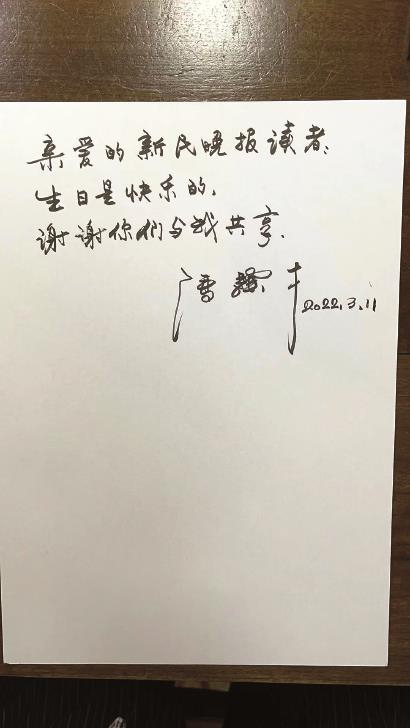 亲爱的新民晚报读者：
生日是快乐的，
谢谢你们与我共享.
2022.3.11